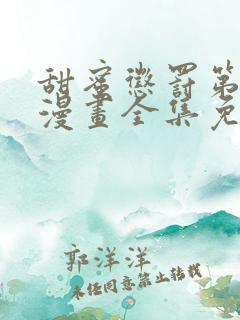 甜蜜懲罰第
漫畫全集免
郭洋洋
未经同意禁止转载